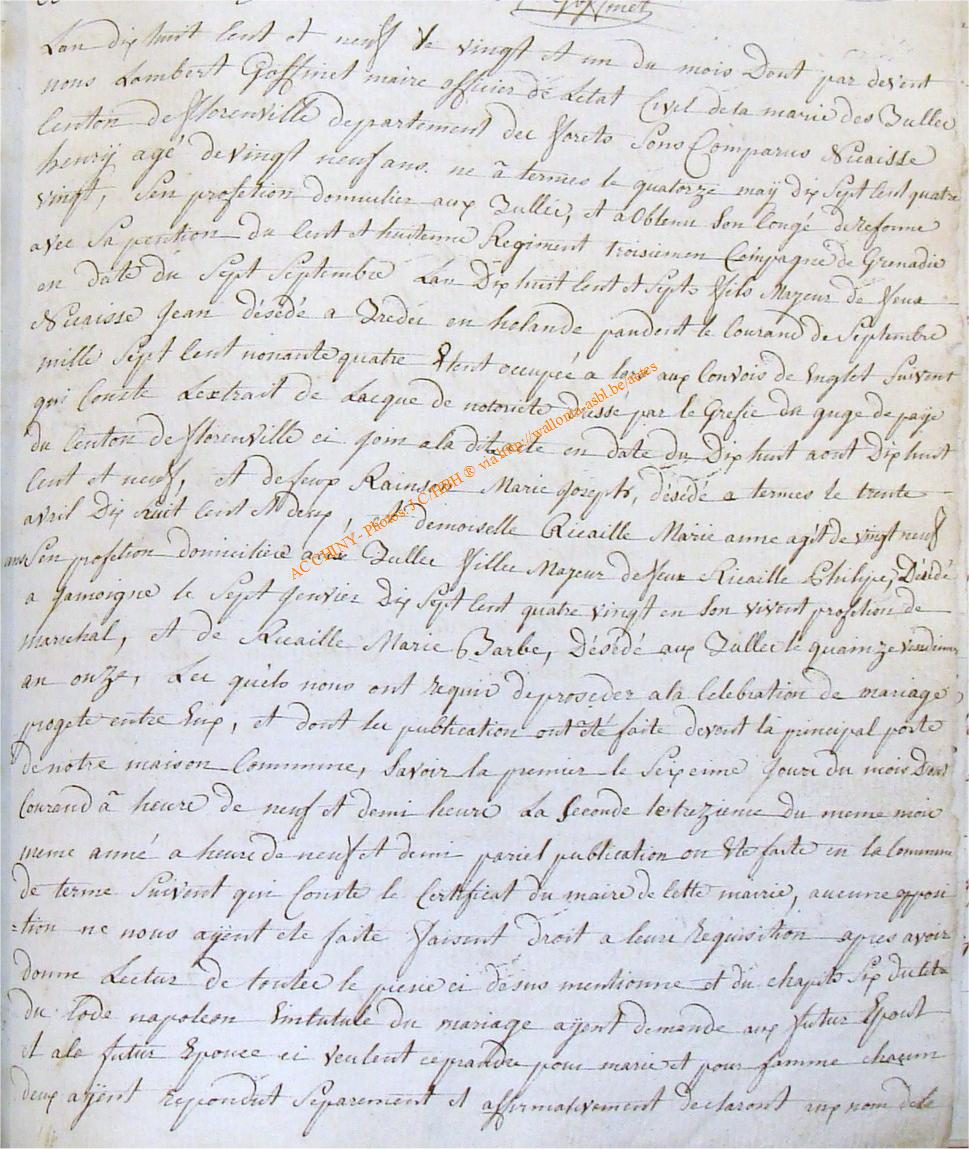 Lan dix huit Cent et neuf le vingt et un du mois Dout par devent
nous Lambert Goffinet maire officier de Letat Civil dela marie des Bullei
Centon de florenville departement dei forets Sons Comparus Nicaisse
henrÿ agé de vingt neuf ans. ne à termes le quatorze maÿ dix Sept Cent quatre
vingt, Sen profetion domicilier aux Bullei, et a Obtenu Son Congé de reforme
avec Sa pention du Cent et huitieme Regiment troisiemen Compagne de Grenadie
en daté du Sept Septembre Lan Dix huit Cent et Septs fils Majeur de feux
Nicaisse Jean désédé a Bredei en holande pandent le Courand de Septembre
mille Sept Cent nonante quatre Etent occupée à aux Convois de Englet Suivent
qui Conste Lextrait de Lacque de notoriete par le Grefie du guge de paÿe
du Centon de florenville ci gom ala dite en date du Dix huit aout Dix huit
Cent et neuf, et defeux Rainson Marie Josepts, désédé a termes le trente
avril Dix huit Cent et deux, demoiselle Ricaille Marie anne agét de vingt neuf
ans Sen profetion domiciliére aux Bullei fillee Majeur defeux Ricaille Philipe, Désédé
a Jamoigne le Sept Genvier Dix Sept Cent quatre vingt en Son vivent profetion de
marichal, et de Ricaille Marie Barbe, Désédé aux Bullei le quainze
an onze, Lei quèls nous ont requir deproseder ala Celebration de mariage,
progete entre Eux, et dont lei publication ont Eté faite devent la principal porte
de notre maison Commune, Savoir la premier le Sixeime Jour du mois Dout
Courend à heure de neuf et demi heure La Seconde le trezieme du meme mois
meme anné a heure de neuf et demi pariel publication on Ete faite en la Commune
de terme Suivent qui Conste le Certificat du maire de Cette mairie, aucune oppoi
=tion ne nous aÿent ete faite faisent droit a leure Requisition apres avoir
donne Lectur de toutee le piece ci désus mentionne et du chapits Six du tite
du Code napoleon Emtutule du mariage aÿent demande aux futur Epout
et ala futur Epouce ci veulent ceprandre pour marie et pour famme chacun
deux aÿent repondut Separement et affirmativement declaront aux nom dela